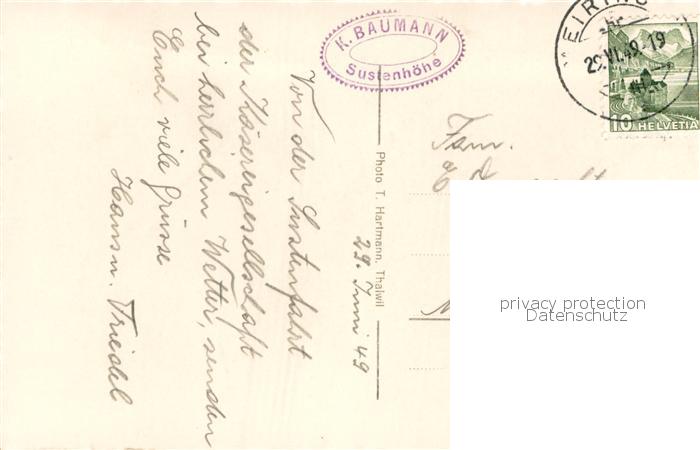 K. BAUMANN
Sustenhöhe
EIRING
29.VI.49-19
10 HELVETIA
29. Juni 49
Von der Sustenfahrt
der Käsereigesellschaft
bei herrlichem Wetter, senden
Euch viele Grüsse
Hans u. Friedel
Photo T. Hartmann, Thalwil
Fam.
E.
privacy protection
Datenschutz